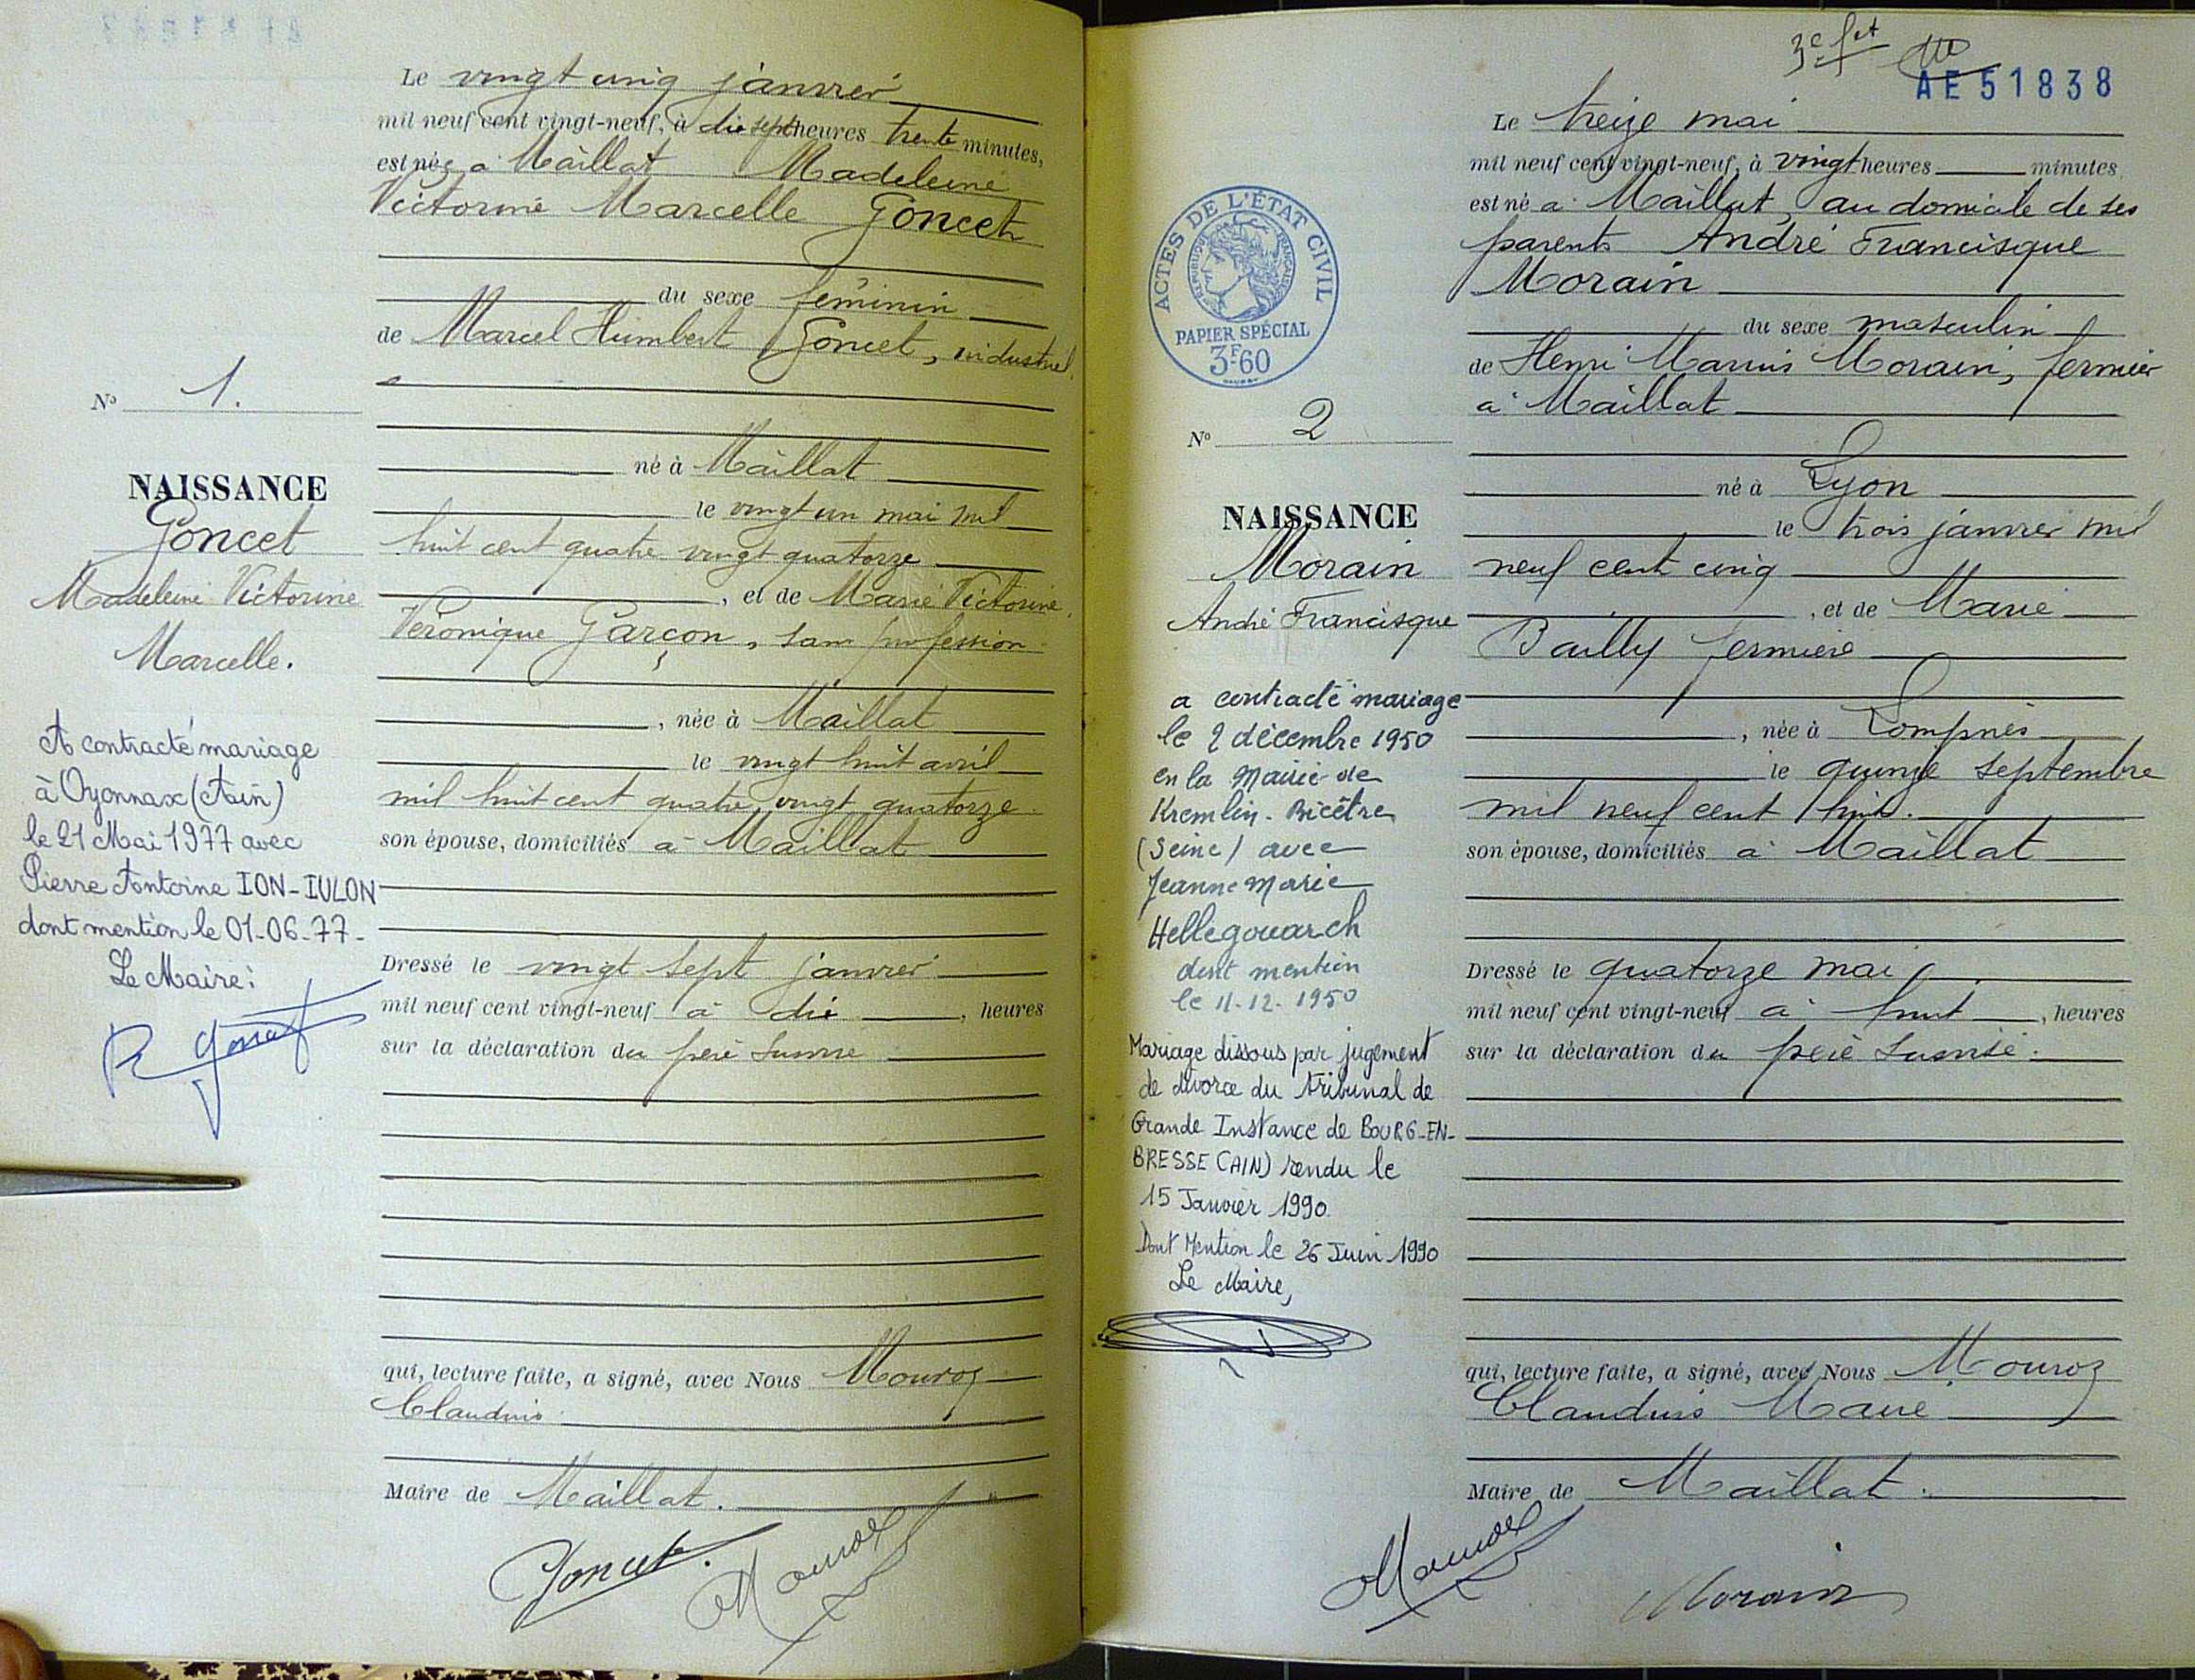 Le vingt cinq janvier
mil neuf cent vingt-neuf, à dix sept heures trente minutes,
est née à Maillat Madeleine
Victorine Marcelle Goncet
du sexe féminin
de Marcel Humbert Goncet, industriel
né à Maillat
le vingt un mai mil
huit cent quatre vingt quatorze
, et de Marie Victorine
Véronique Garçon, sans profession
, née à Maillat
le vingt huit avril
mil huit cent quatre vingt quatorze
son épouse, domiciliés à Maillat
Dressé le vingt sept janvier
mil neuf cent vingt-neuf à dix, heures
sur la déclaration du père susvisé
qui, lecture faite, a signé, avec Nous Mouroz
Claudius
Maire de Maillat.
Goncet.
Mouroz
No 1.
NAISSANCE
Goncet
Madeleine Victorine
Marcelle.
A contracté mariage
à Oyonnax (Ain)
le 21 Mai 1977 avec
Pierre Antoine ION-IULON
dont mention le 01-06-77-
Le Maire:
3e fet
AE 51838
Le treize mai
mil neuf cent vingt-neuf, à vingt heures minutes
est né à Maillat, au domicile de ses
parents André Francisque
Morain
du sexe masculin
de Henri Marius Morain, fermier
à Maillat
né à Lyon
le trois janvier mil
neuf cent cinq
, et de Marie
Bailly fermière
, née à Lompnès
le quinze septembre
mil neuf cent huit.
son épouse, domiciliés à Maillat
Dressé le quatorze mai
mil neuf cent vingt-neuf à huit, heures
sur la déclaration du père susvisé.
qui, lecture faite, a signé, avec Nous Mouroz
Claudius Marie
Maire de Maillat.
Mouroz
Morain
ACTES DE L'ÉTAT CIVIL
RÉPUBLIQUE FRANÇAISE
PAPIER SPÉCIAL
3F60
No 2
NAISSANCE
Morain
André Francisque
a contracté mariage
le 2 décembre 1950
en la Mairie de
Kremlin-Bicêtre
(Seine) avec
Jeanne Marie
Hellegouarch
dont mention
le 11-12-1950
Mariage dissous par jugement
de divorce du tribunal de
Grande Instance de BOURG-EN-
BRESSE (AIN) rendu le
15 Janvier 1990
Dont Mention le 26 Juin 1990
Le Maire,